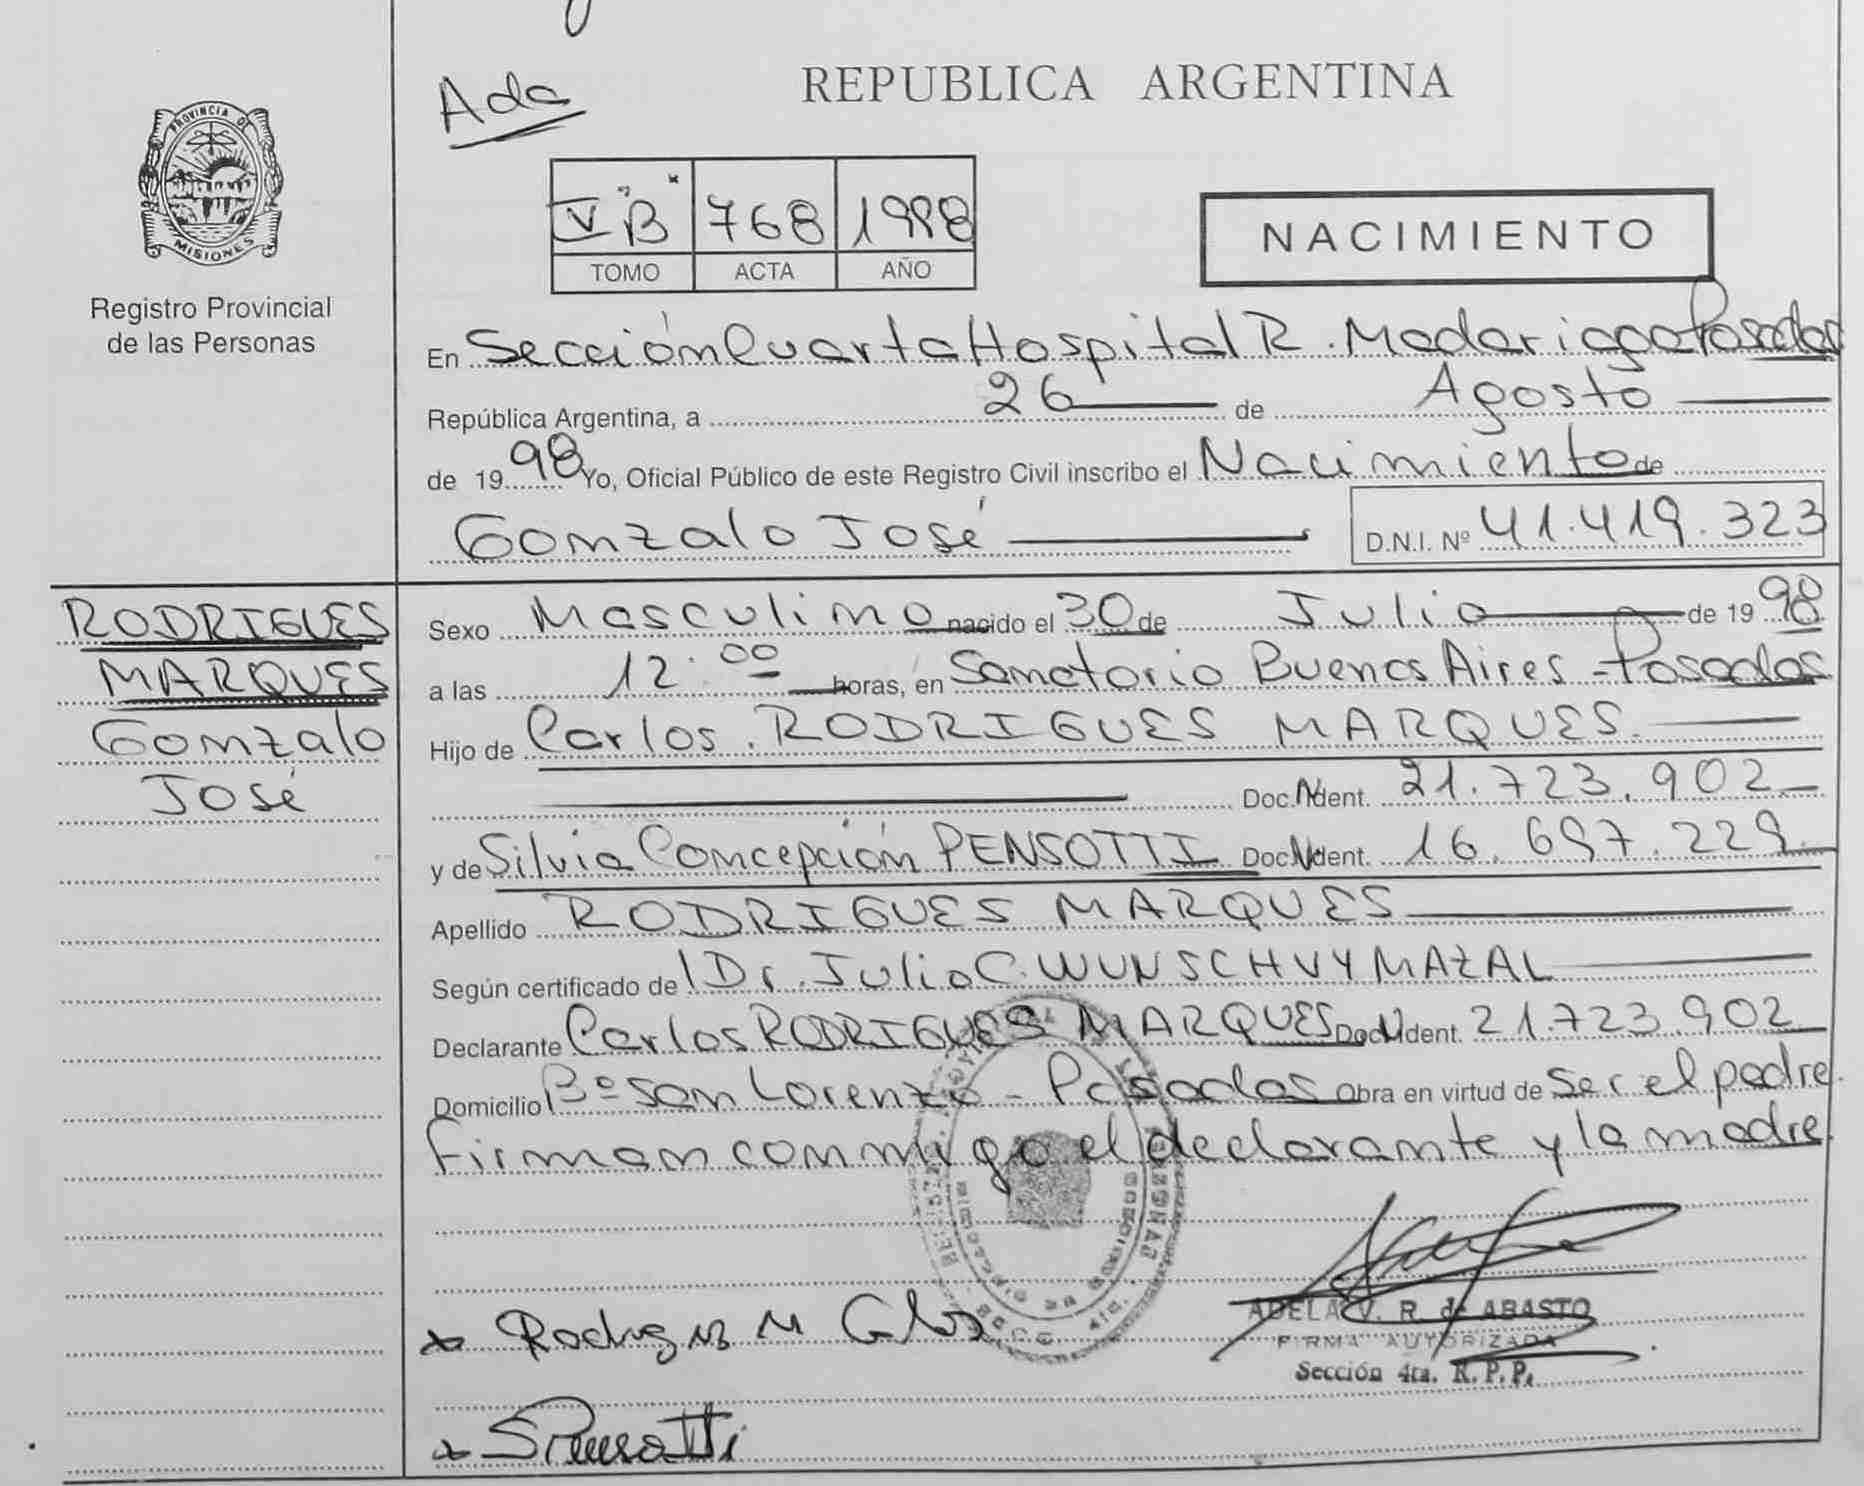 Ada
REPUBLICA ARGENTINA
PROVINCIA DE
MISIONES
Registro Provincial
de las Personas
V "B" 768 1998
TOMO ACTA AÑO
NACIMIENTO
En Sección Cuarta Hospital R. Madariaga Posadas
República Argentina, a 26 de Agosto
de 1998 Yo, Oficial Público de este Registro Civil inscribo el Nacimiento de
Gonzalo José D.N.I. Nº 41.419.323
RODRIGUES
MARQUES
Gonzalo
José
Sexo Masculino nacido el 30 de Julio de 1998
a las 12:00 horas, en Sanatorio Buenos Aires - Posadas
Hijo de Carlos RODRIGUES MARQUES
Doc. Ident. 21.723.902
y de Silvia Concepción PENSOTTI Doc. Ident. 16.697.229
Apellido RODRIGUES MARQUES
Según certificado de Dr. Julio C. WUNSCH VYMAZAL
Declarante Carlos RODRIGUES MARQUES Doc. Ident. 21.723.902
Domicilio Bº San Lorenzo - Posadas Obra en virtud de ser el padre.
Firman conmigo el declarante y la madre.
ADELA V. R. de ABASTO
FIRMA AUTORIZADA
Sección 4ta. R.P.P.
Rodrigues M Carlos
SPensotti